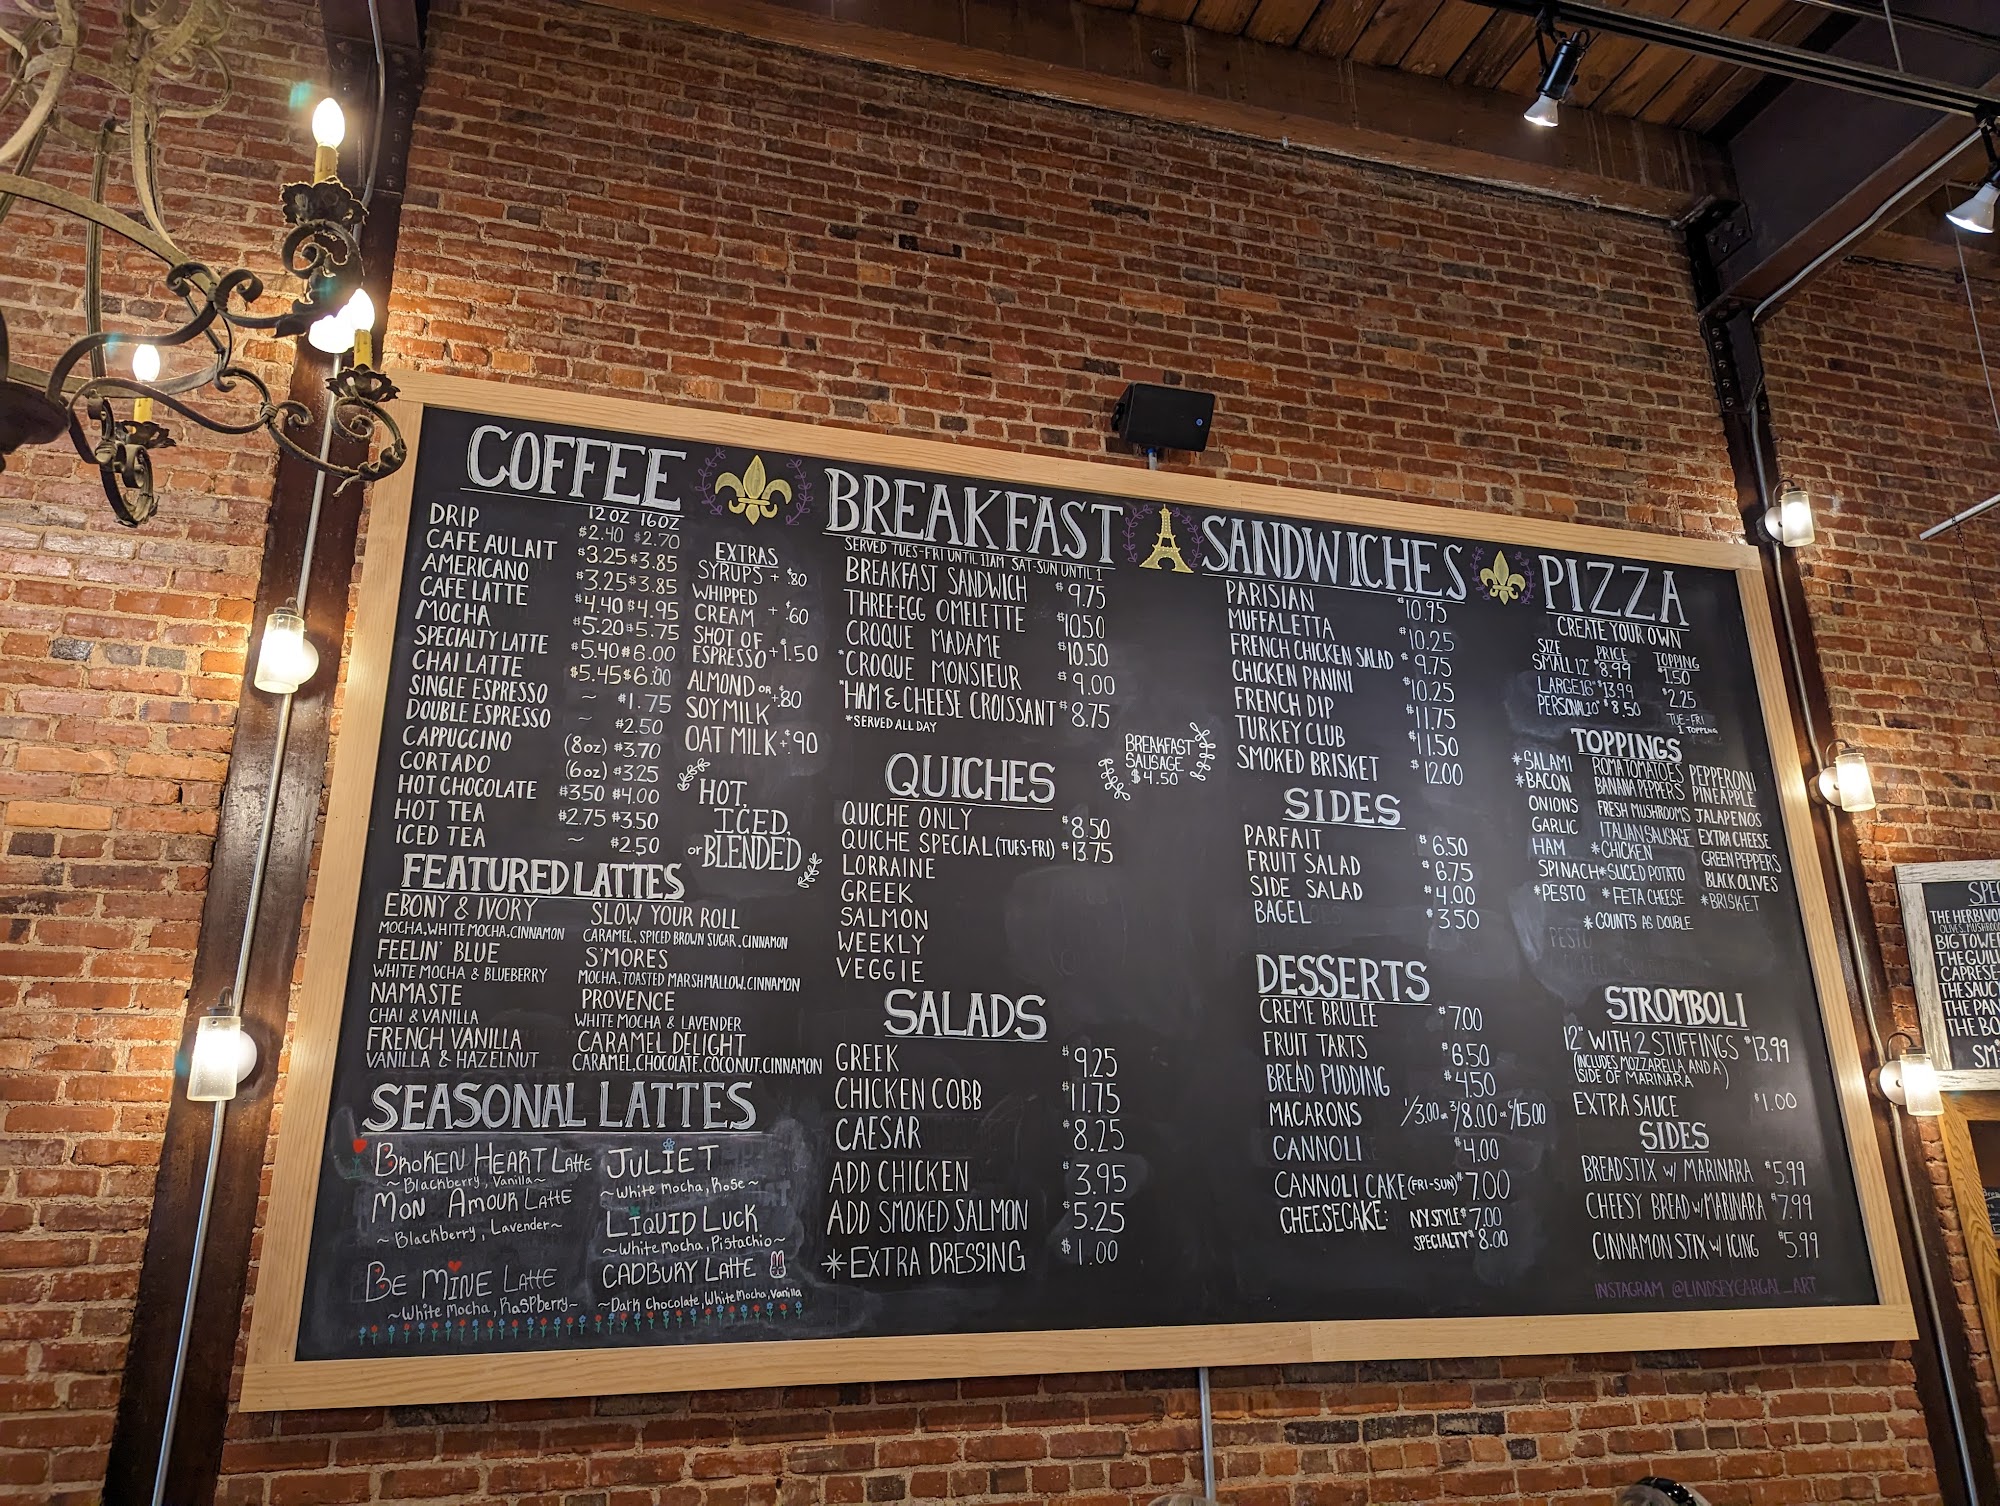 COFFEE
12 OZ 16OZ
DRIP $2.40 $2.70
CAFE AU LAIT $3.25 $3.85
AMERICANO $3.25 $3.85
CAFE LATTE $4.40 $4.95
MOCHA $5.20 $5.75
SPECIALTY LATTE $5.40 $6.00
CHAI LATTE $5.45 $6.00
SINGLE ESPRESSO ~ $1.75
DOUBLE ESPRESSO ~ $2.50
CAPPUCCINO (8oz) $3.70
CORTADO (6oz) $3.25
HOT CHOCOLATE $3.50 $4.00
HOT TEA $2.75 $3.50
ICED TEA ~ $2.50
EXTRAS
SYRUPS + $.80
WHIPPED
CREAM + $.60
SHOT OF
ESPRESSO +$1.50
ALMOND OR
SOY MILK +.80
OAT MILK +$.90
HOT,
ICED,
or BLENDED
FEATURED LATTES
EBONY & IVORY
MOCHA, WHITE MOCHA, CINNAMON
FEELIN' BLUE
WHITE MOCHA & BLUEBERRY
NAMASTE
CHAI & VANILLA
FRENCH VANILLA
VANILLA & HAZELNUT
SLOW YOUR ROLL
CARAMEL, SPICED BROWN SUGAR, CINNAMON
S'MORES
MOCHA, TOASTED MARSHMALLOW, CINNAMON
PROVENCE
WHITE MOCHA & LAVENDER
CARAMEL DELIGHT
CARAMEL, CHOCOLATE, COCONUT, CINNAMON
SEASONAL LATTES
BROKEN HEART LATTE
~ Blackberry, Vanilla ~
MON AMOUR LATTE
~ Blackberry, Lavender ~
BE MINE LATTE
~ White Mocha, Raspberry ~
JULIET
~ White Mocha, Rose ~
LIQUID LUCK
~ White Mocha, Pistachio ~
CADBURY LATTE
~ Dark Chocolate, White Mocha, Vanilla
BREAKFAST
SERVED TUES-FRI UNTIL 11AM SAT-SUN UNTIL 1
BREAKFAST SANDWICH $9.75
THREE-EGG OMELETTE $10.50
CROQUE MADAME $10.50
*CROQUE MONSIEUR $9.00
*HAM & CHEESE CROISSANT $8.75
*SERVED ALL DAY
BREAKFAST
SAUSAGE
$4.50
QUICHES
QUICHE ONLY $8.50
QUICHE SPECIAL (TUES-FRI) $13.75
LORRAINE
GREEK
SALMON
WEEKLY
VEGGIE
SALADS
GREEK $9.25
CHICKEN COBB $11.75
CAESAR $8.25
ADD CHICKEN $3.95
ADD SMOKED SALMON $5.25
*EXTRA DRESSING $1.00
SANDWICHES
PARISIAN $10.95
MUFFALETTA $10.25
FRENCH CHICKEN SALAD $9.75
CHICKEN PANINI $10.25
FRENCH DIP $11.75
TURKEY CLUB $11.50
SMOKED BRISKET $12.00
SIDES
PARFAIT $6.50
FRUIT SALAD $6.75
SIDE SALAD $4.00
BAGEL $3.50
DESSERTS
CREME BRULEE $7.00
FRUIT TARTS $6.50
BREAD PUDDING $4.50
MACARONS 1/3.00 or 3/8.00 or 6/15.00
CANNOLI $4.00
CANNOLI CAKE (FRI-SUN) $7.00
CHEESECAKE: NY STYLE $7.00
SPECIALTY $8.00
PIZZA
CREATE YOUR OWN
SIZE PRICE TOPPING
SMALL 12" $8.99 $1.50
LARGE 16" $13.99 $2.25
PERSONAL 10" $8.50 TUE-FRI
1 TOPPING
TOPPINGS
*SALAMI
*BACON
ONIONS
GARLIC
HAM
SPINACH
*PESTO
ROMA TOMATOES
BANANA PEPPERS
FRESH MUSHROOMS
ITALIAN SAUSAGE
*CHICKEN
*SLICED POTATO
*FETA CHEESE
PEPPERONI
PINEAPPLE
JALAPENOS
EXTRA CHEESE
GREEN PEPPERS
BLACK OLIVES
*BRISKET
*COUNTS AS DOUBLE
STROMBOLI
12" WITH 2 STUFFINGS $13.99
(INCLUDES MOZZARELLA AND A
SIDE OF MARINARA)
EXTRA SAUCE $1.00
SIDES
BREADSTIX w/ MARINARA $5.99
CHEESY BREAD w/ MARINARA $7.99
CINNAMON STIX w/ ICING $5.99
INSTAGRAM @LINDSEYCARGAL_ART
THE HERBIVO
OLIVES, MUSHROO
BIG TOWE
THE GUILL
CAPRESE
THE SAUC
THE PAN
THE BO